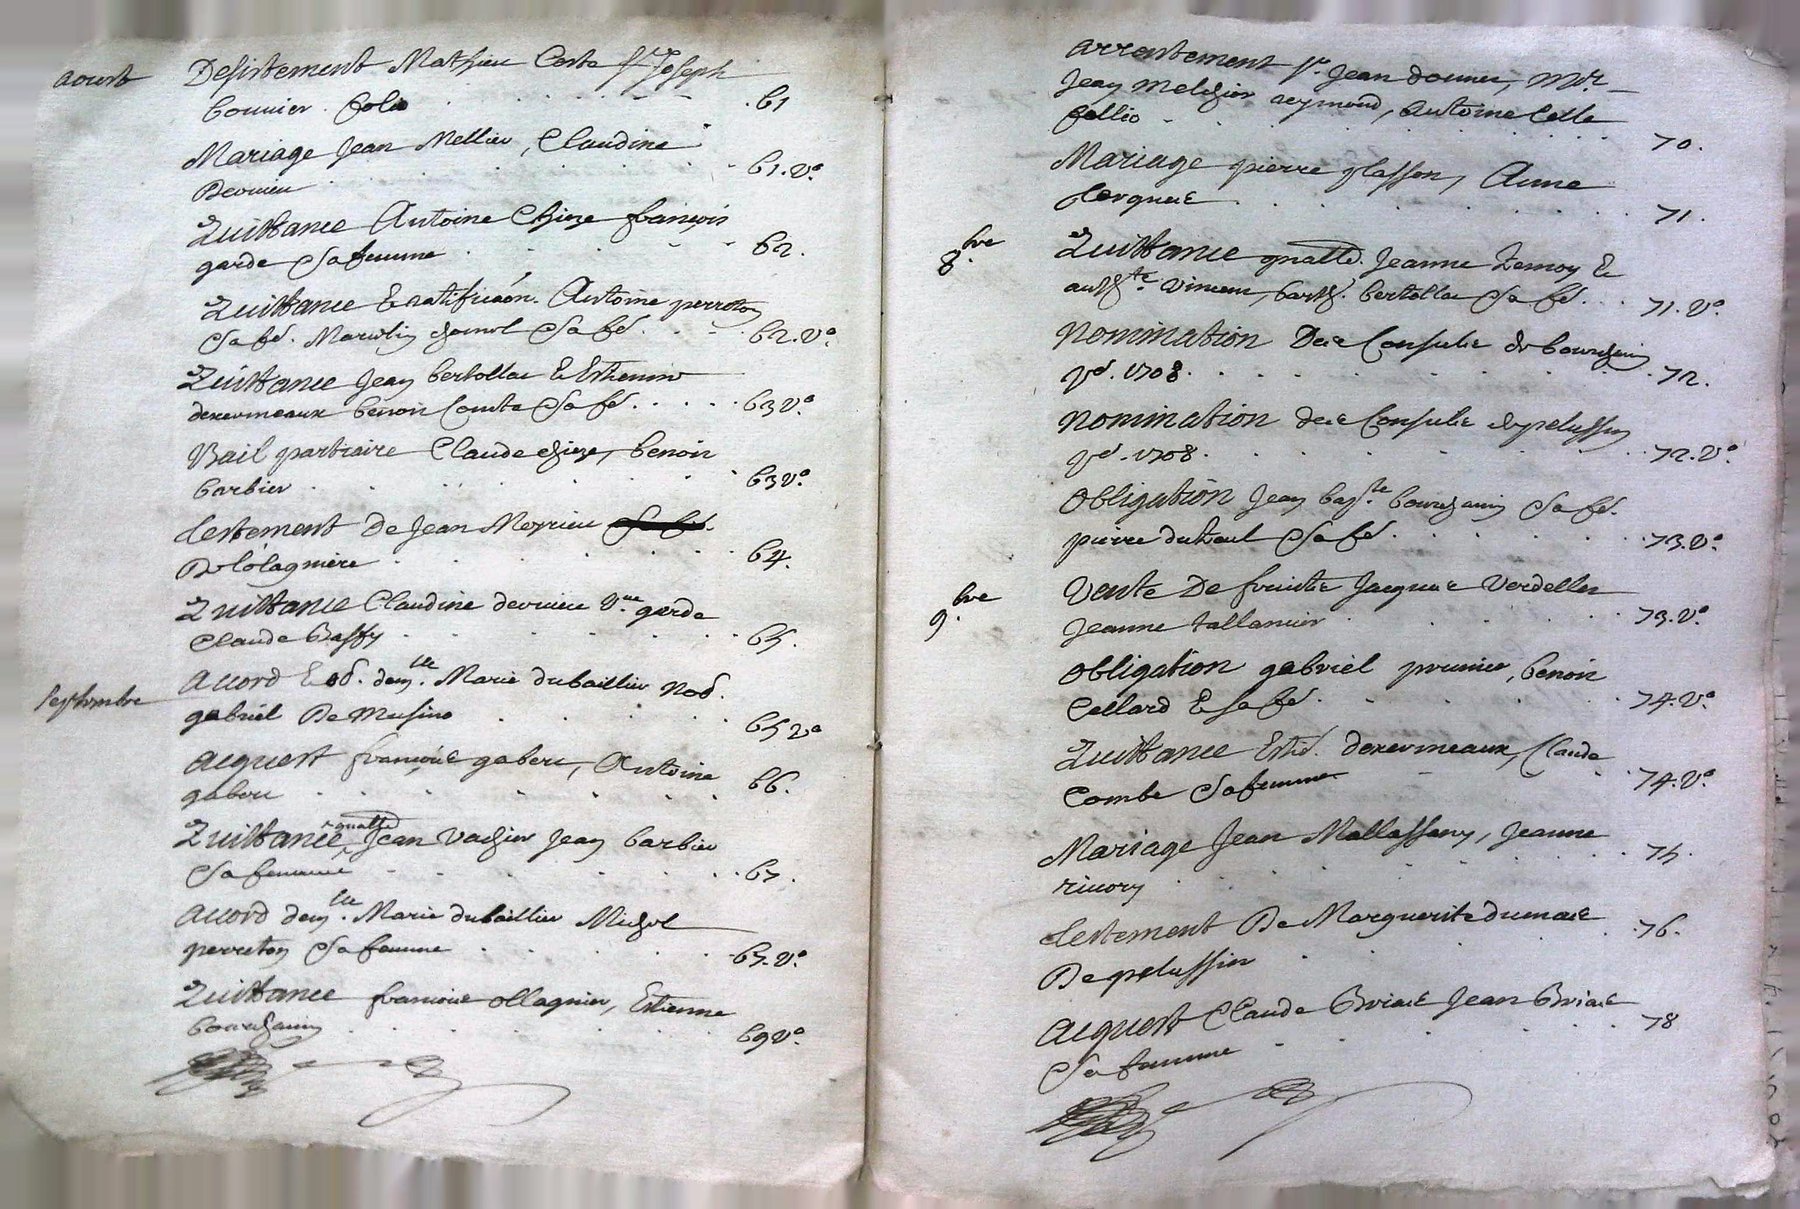 aoust
Desistement Mathieu Coste sr Joseph
bonnier. folio 61
Mariage Jean Mellier, Claudine
Dervieu 61. v°.
Quittance Antoine Chieze françois
garde sa femme 62.
Quittance & ratification. Antoine perreton
sa fe. Marcelin chomol sa fe. 62. v°.
Quittance Jean bertollac & Estienne
dexermeaux benoit Comte sa fe. 63 v°.
Bail partiaire Claude chieze, benoit
barbier 63 v°.
testement De Jean Meyrieu
De lolagniere 64.
Quittance Claudine dervieu v.ve garde
Claude Baffy 65.
Septembre
Accord & od. dem.lle Marie dubaillier Nod.
gabriel De Musino 65 v°
acquest françoise gaberc, Antoine
gaberc 66.
Quittance gnalle Jean Vachier Jean barbier
sa femme 67.
Accord dem.lle Marie dubaillier Michel
perreton sa femme 67. v°.
Quittance françoise ollagnier, Estienne
bourchanin 69 v°.
arrentement sr. Jean donnet, Mr.
Jean Melchior reymond, Antoine Celle
follio 70.
Mariage pierre glasson, Anne
Clerguet 71.
8.bre
Quittance gnalle. Jeanne Zemoy &
auth.te Vincent, barth. bertollac sa fe. 71. v°.
Nomination Des Consuls de bourchanin
pd. 1708. 72.
Nomination des Consuls de pelussin
pd. 1708. 72. v°.
Obligation Jean bap.te bourchanin sa fe.
pierre duteul sa fe. 73. v°.
9.bre
Vente De fruicts Jacques Verdellet
Jeanne tallanier 73. v°.
Obligation gabriel prunier, benoit
Cellard & sa fe. 74. v°.
Quittance Este. dexermeaux, Claude
Combe sa femme 74. v°.
Mariage Jean Mallassany, Jeanne
rivory 75.
testement De Marguerite dumas
De pelussin 76.
acquest Claude Briact Jean Briact
sa femme 78